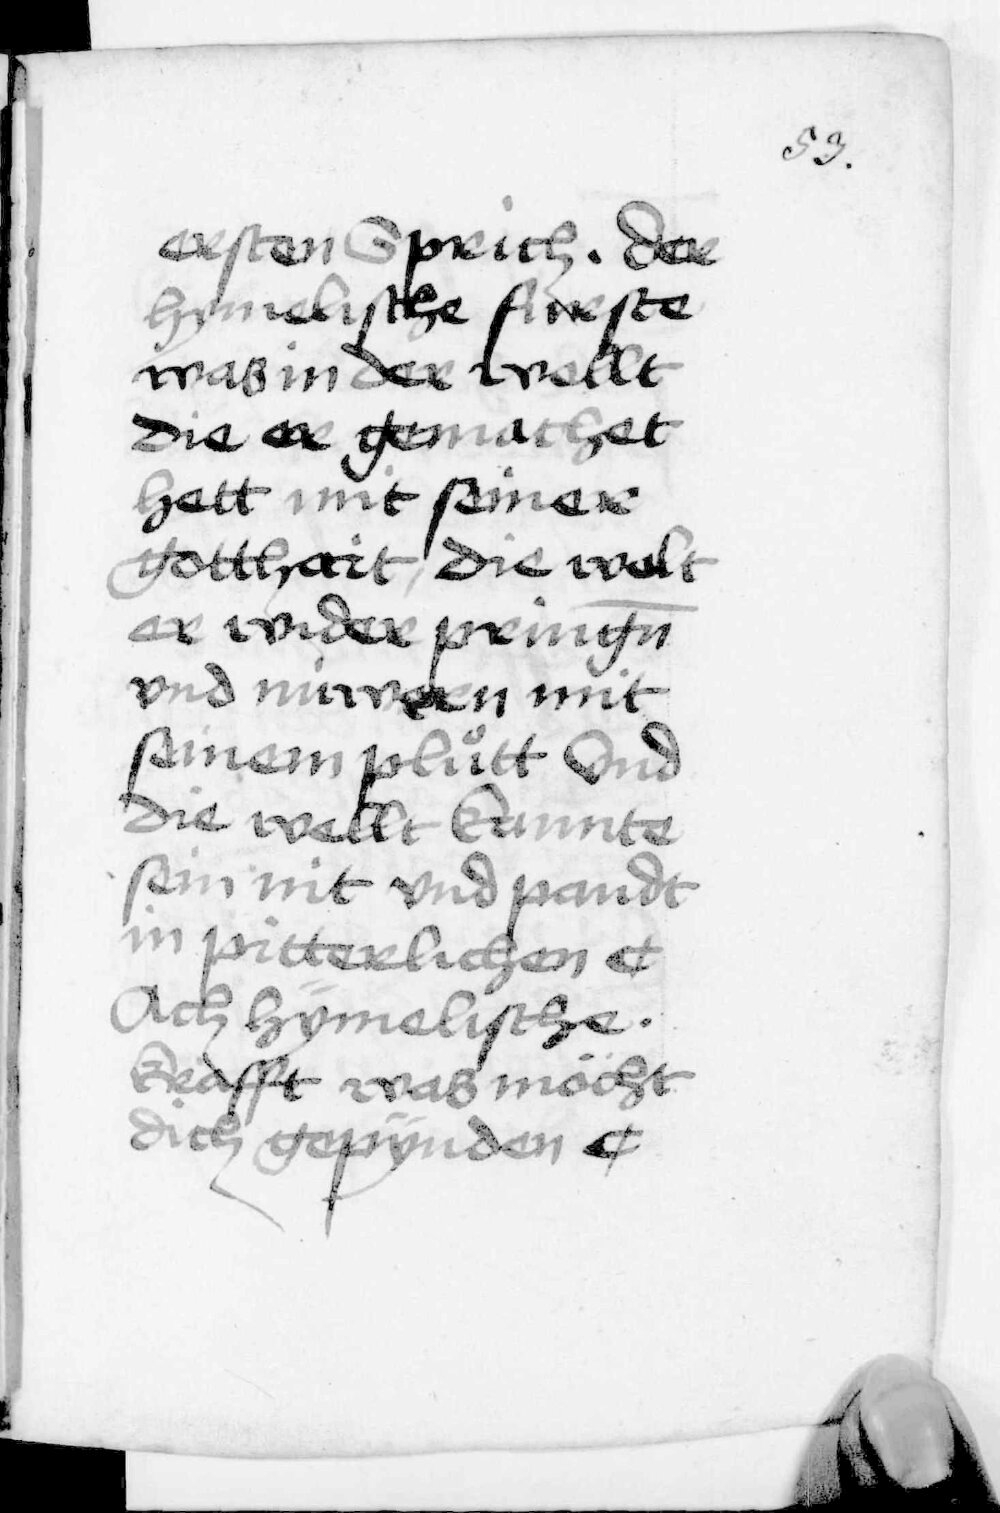 53.
ersten Sprich. der
hymelische furste
was in der wellt
die er gemachet
hett mit seiner
gotthait, die welt
er wider pringn̄
vnd nuwern mit
seinem plůtt Vnd
die wellt kannte
sein nit vnd pandt
in pitterlichen ¢
Ach hÿmelische.
krafft was möcht
dich gepÿnden ¢